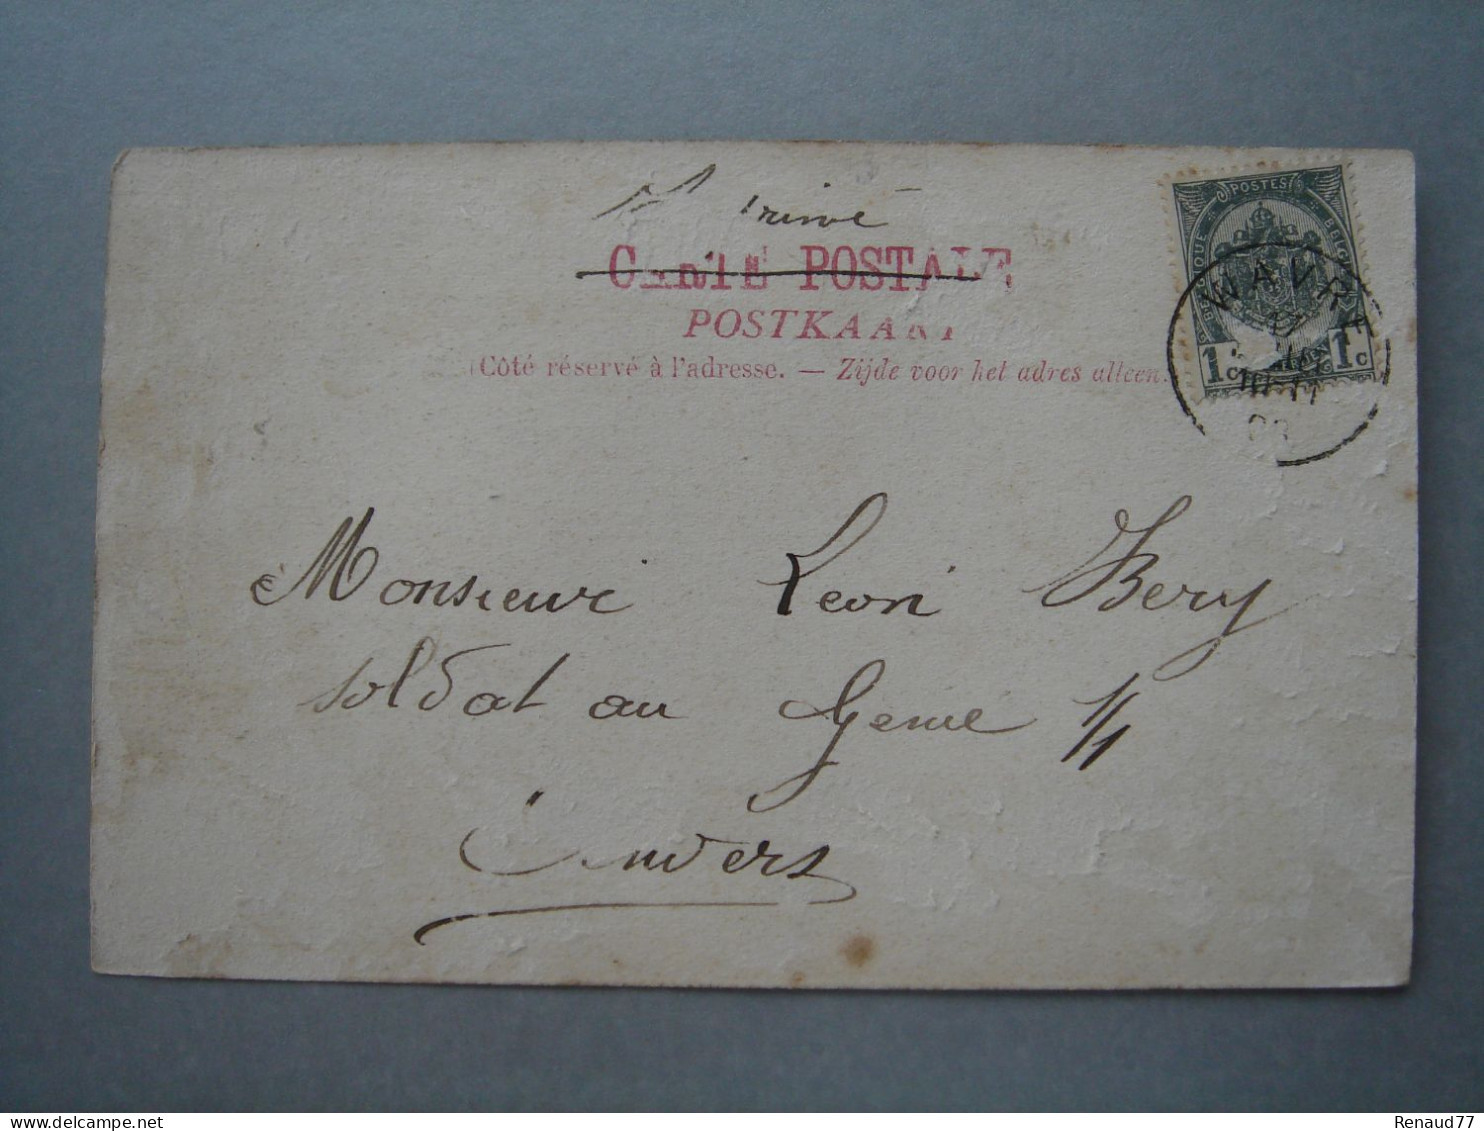 Imprimé
CARTE POSTALE
POSTKAART
(Côté réservé à l'adresse. — Zijde voor het adres alleen.
POSTES
BELGIQUE
1c 1c
WAVRE
Monsieur Léon Bery
soldat au Génie 1/1
Anvers
delcampe.net
Renaud77